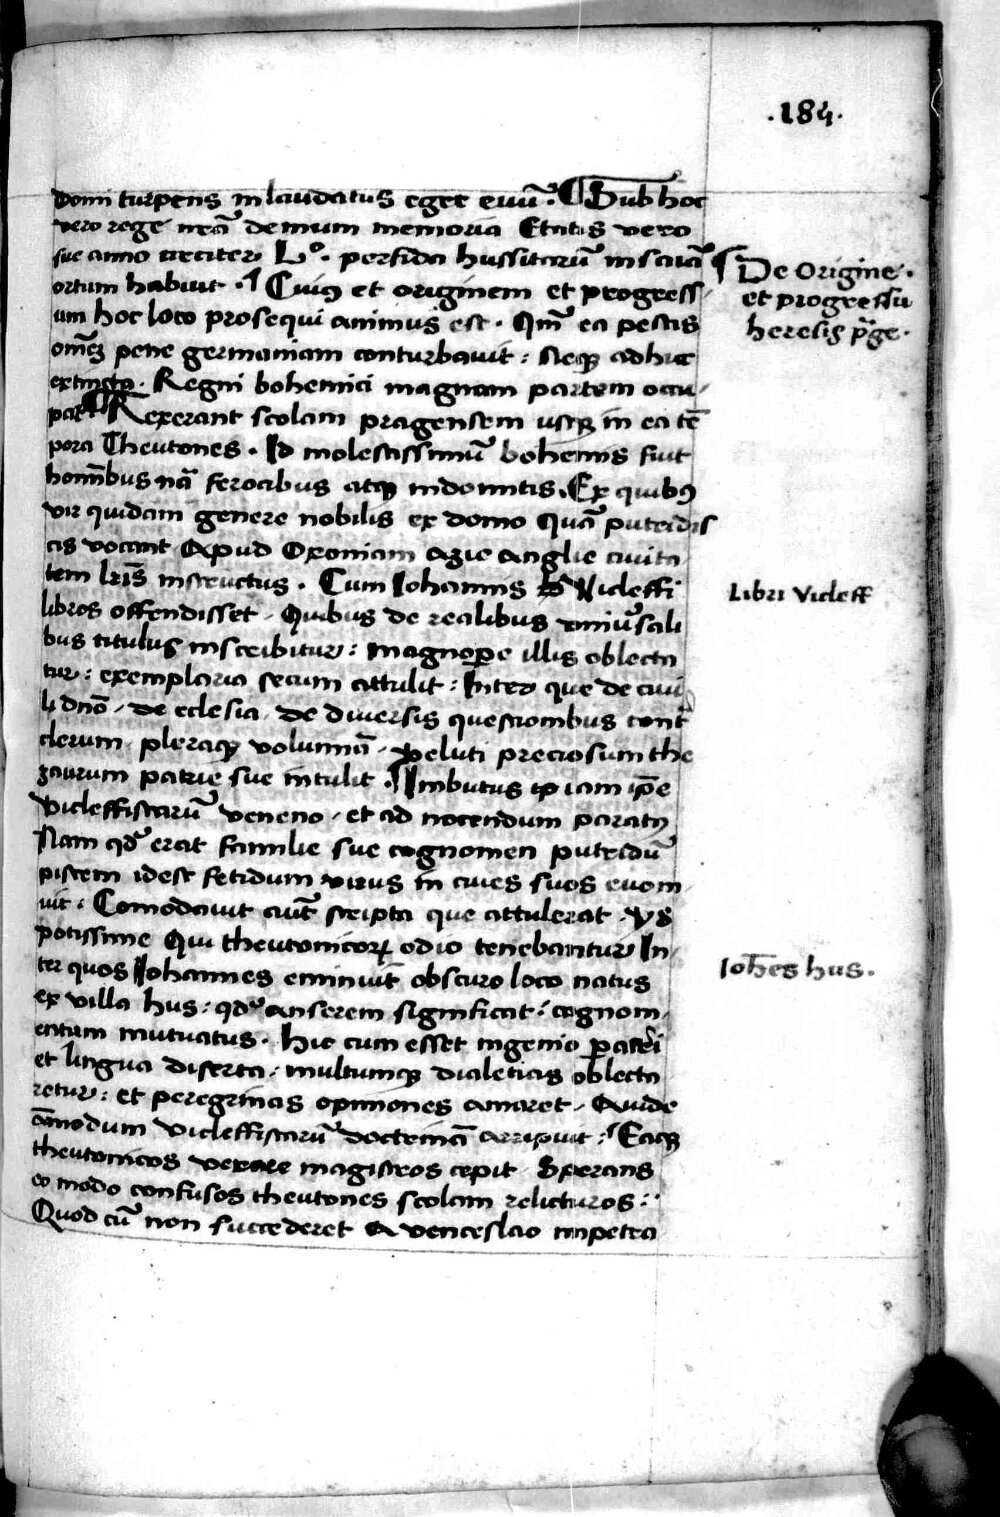 .184.
domi turpens inlaudatus eget euū̄. ¶ Sub hoc
vero rege nr̄ā demum memoria Etatis vero
sue anno circiter Lº. perfida hussitarū insaniā
ortum habuit. ¶ Cuiꝰ et originem et progress
um hoc loco prosequi animus est. Qm̄ ea pestis
om̄eꝫ pene germaniam conturbauit: Neqꝫ adhuc
extincta. Regni bohemici magnam partem occu
pat ¶ Rexerant scolam pragensem usqꝫ in ea tē
pora Theutones. Id molestissimū bohemis fuit
hom̄ibus nā ferocibus atqꝫ indomitis. Ex quibꝰ
vir quidam genere nobilis ex domo Quā putridi
cis vocant Apud Oxoniam Anglie ciuita
tem lr̄is instructus. Cum Iohannis Vicleffi
libros offendisset. Quibus de realibus vniuersali
bus titulus inscribitur: magnopere illis oblecta
tur: exemplaria secum attulit: Inter que de ciui
li dn̄o. de eclesia. de diuersis questionibus contᵃ
clerum. pleraqꝫ volumīa. veluti preciosum the
zaurum patrie sue intulit. ¶ Imbutus iam ip̄e
Vicleffistarū veneno. et ad nocendum paratꝰ
Nam qd̄ erat familie sue cognomen putridū
piscem idest fetidum virus in ciues suos euom
uit. Comodauit aut̄ scripta que attulerat. ys
potissime Qui theutonicorꝝ odio tenebantur In
ter quos Iohannes eminuit obscuro loco natus
ex villa hus: qd̄ anserem significat: cognom
entum mutuatus. hic cum esset ingenio
et lingua diserta. multumqꝫ dialeticis oblecta
retur: et peregrinas opiniones amaret. Auide
āmodum vicleffistarū doctrinā arripuit: Eaqꝫ
theutonicos vexare magistros cepit. Sperans
eo modo confusos theutones scolam relicturos:
Quod cū non succederet A venceslao impetra
¶ De Origine.
et progressu
heresis pᵃge.
Libri Vicleff
Ioh̄es hus.